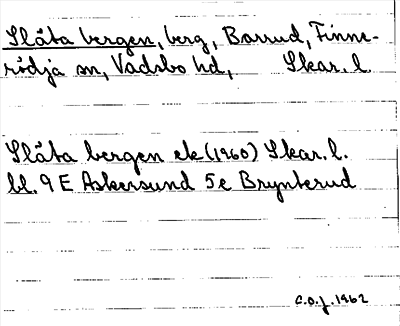 Slåta bergen, berg, Barrud, Finne-
rödja sn, Vadsbo hd, Skar. l.
Slåta bergen ek (1960) Skar. l.
bl. 9 E Askersund 5e Brynterud
C.O.J. 1962